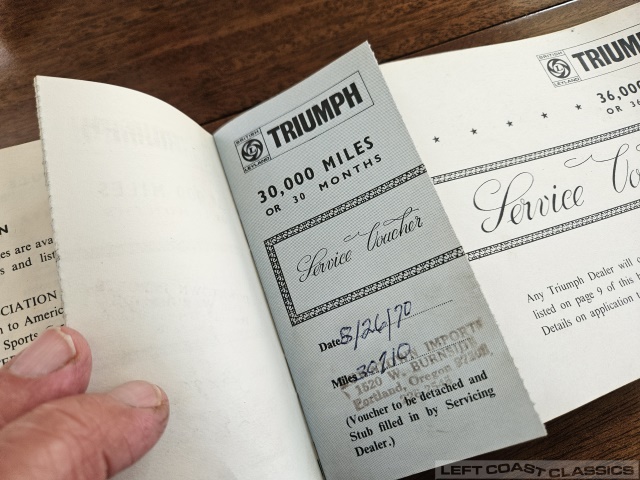 N
es are ava
s and list
CIATION
n to Americ
Sports
BRITISH
LEYLAND
TRIUMPH
30,000 MILES
OR 30 MONTHS
Service Voucher
Date 8/26/70
Miles 30710
IMPORTS
1620 W. BURNSIDE
Portland, Oregon
(Voucher to be detached and
Stub filled in by Servicing
Dealer.)
BRITISH
LEYLAND
TRIUM
36,00
OR 36
Service Vou
Any Triumph Dealer will
listed on page 9 of this
Details on application
LEFT COAST CLASSICS